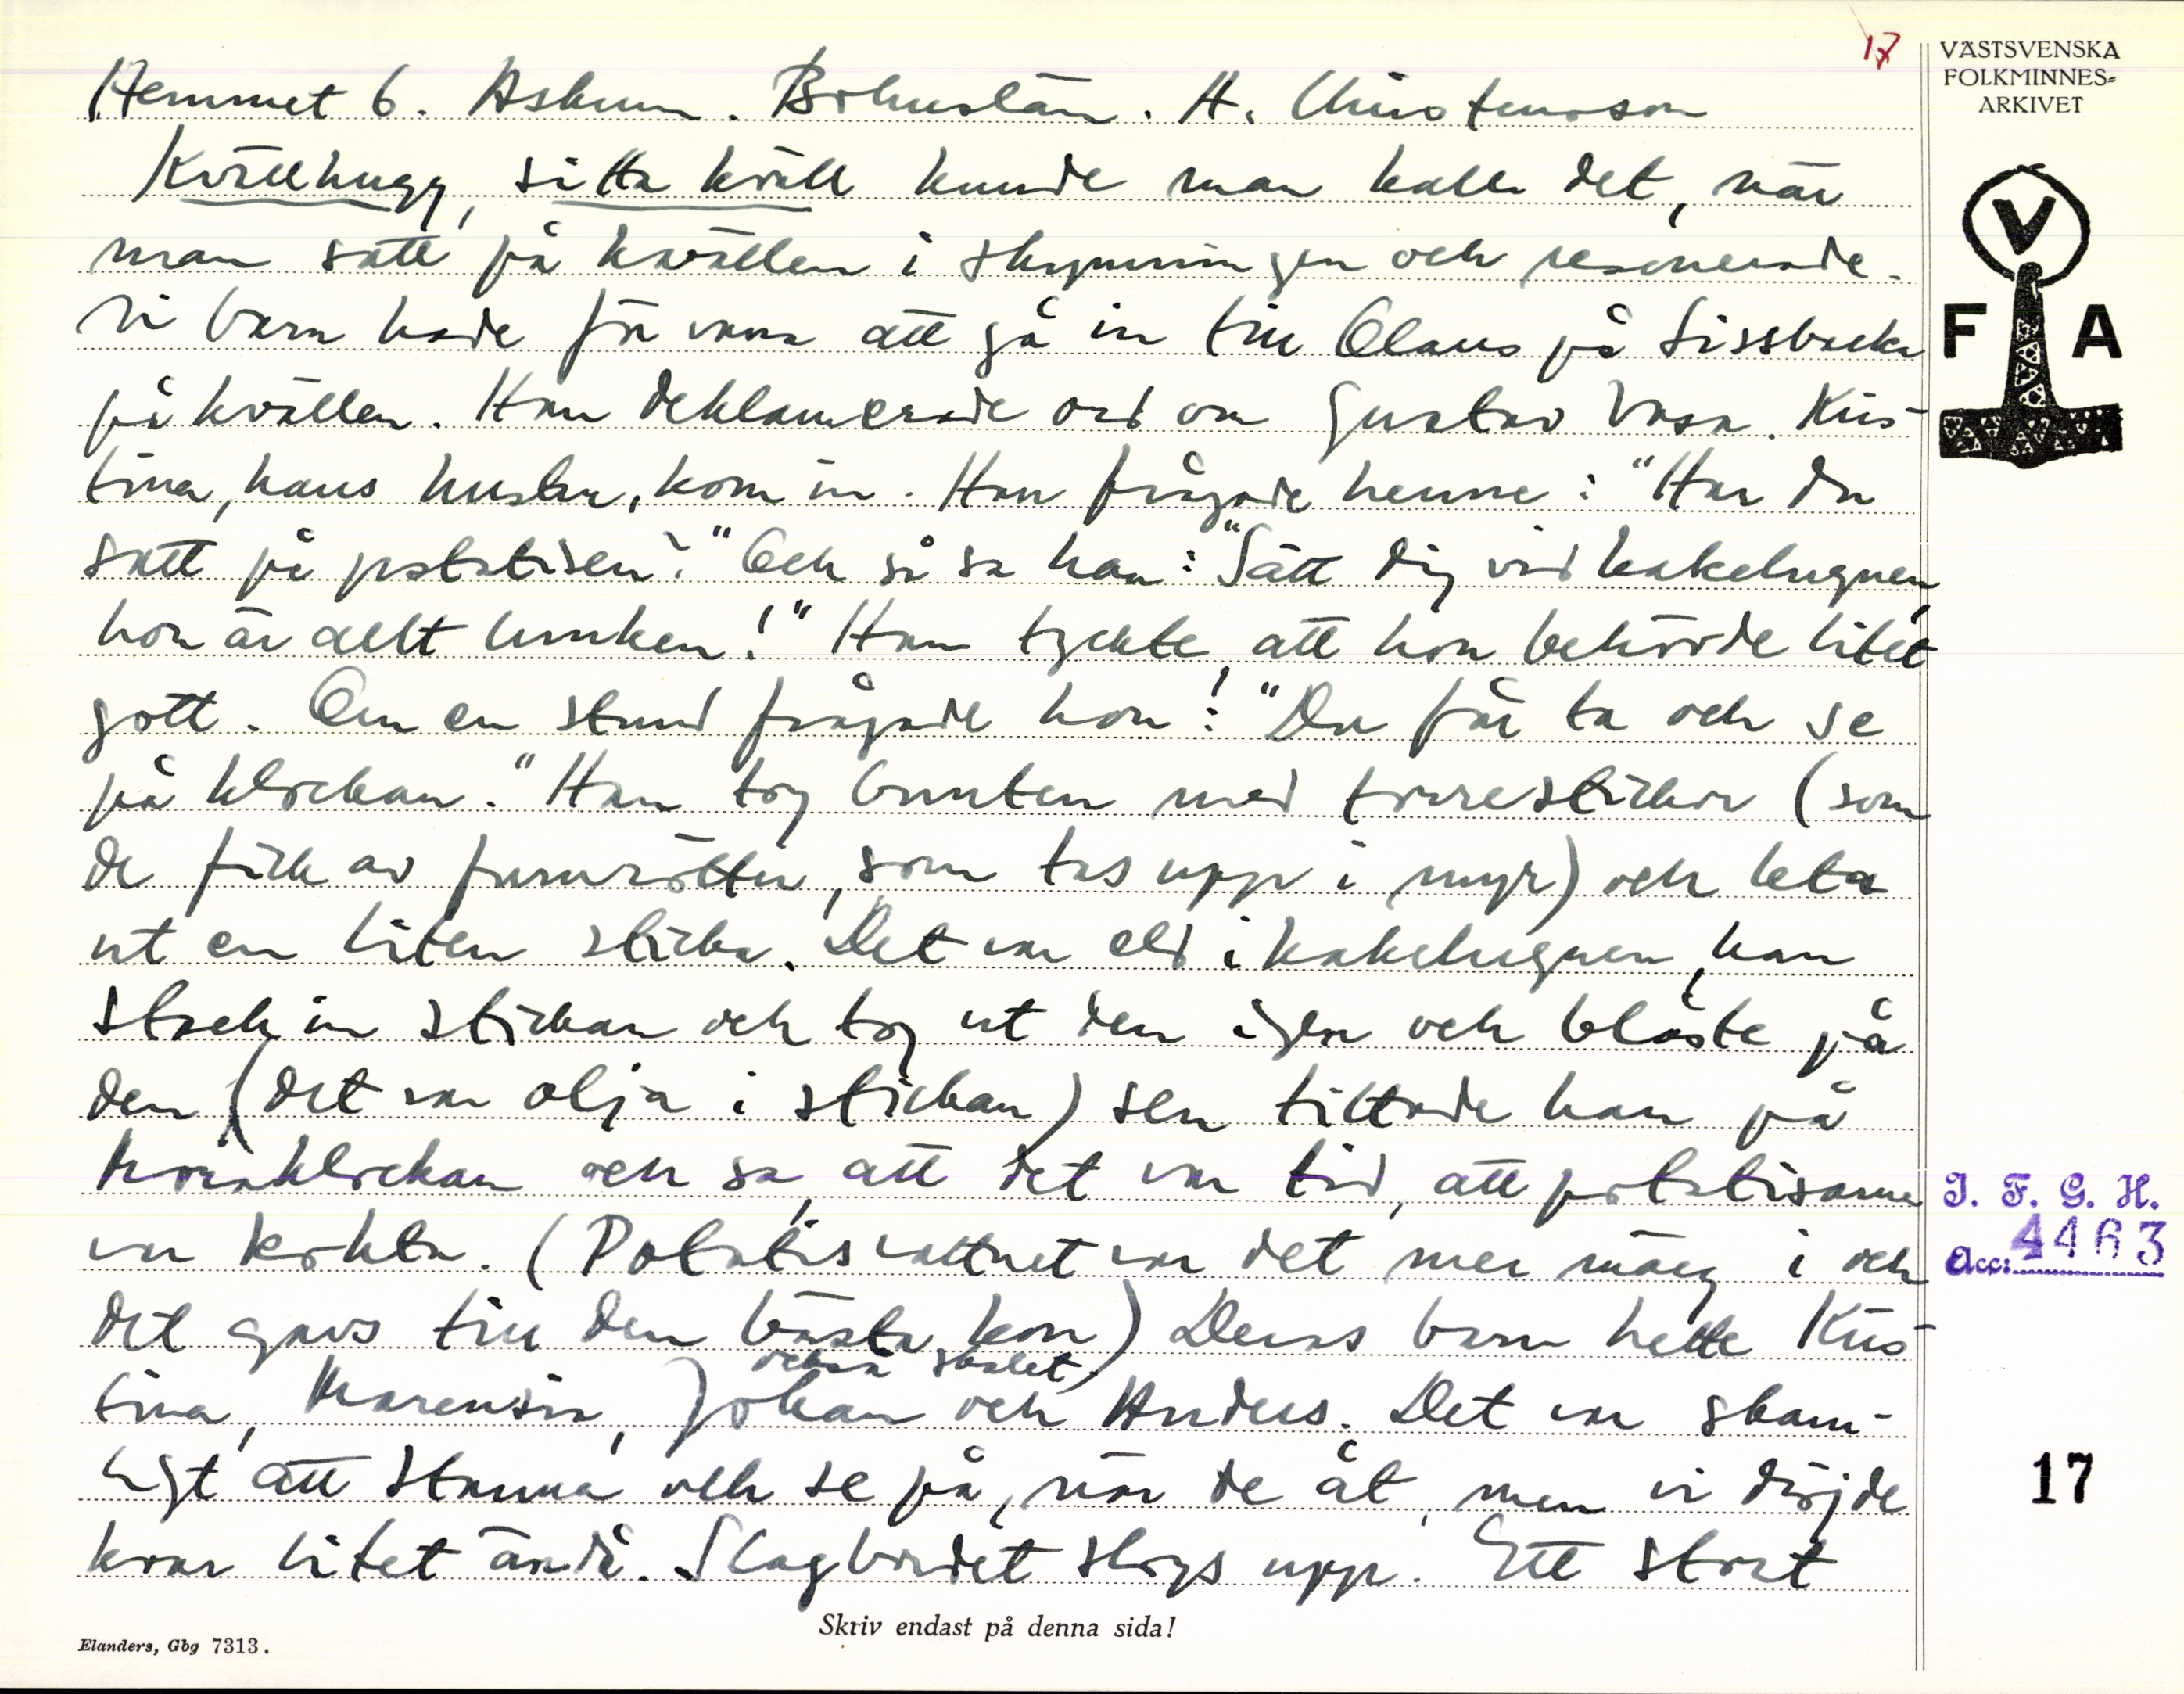 17
VÄSTSVENSKA
FOLKMINNES=
ARKIVET
Hemmet 6. Askum. Bohuslän. H. Christensson
Kvällhugg, sitta kväll kunde man kalla det, när
man satt på kvällen i skymningen och resonerade.
Vi barn hade för vana att gå in till Olaus på Lissbacka
F A
på kvällen. Han deklamerade ord om Gustav Vasa. Kris-
tina, hans hustru, kom in. Han frågade henne: "Har du
satt på potatisen?" Och så sa han: "Sätt dig vid kakelugnen,
hon är allt ljunken!" Han tyckte, att hon behövde litet
gott. Om en stund frågade hon: "Du får ta och se
på klockan." Han tog bunten med törrestickor (som
de fick av fururötter, som tas upp i myr) och leta
ut en liten sticka. Det var eld i kakelugnen, han
stack in stickan och tog ut den igen och blåste på
den (det var olja i stickan) sen tittade han på
Moraklockan och sa, att det var tid, att potatisarna
var kokta. (Potatisvattnet var det mer märg i och
det gavs till den bästa kon) Deras barn hette Kris-
också skalet)
tina, Marensia, Johan och Anders. Det var skam-
ligt att stanna och se på, när de åt, men vi dröjde
kvar litet ändå. Slagbordet slogs upp. Ett stort
I. F. G. H.
Acc: 4463
17
Skriv endast på denna sida!
Elanders, Gbg 7313.